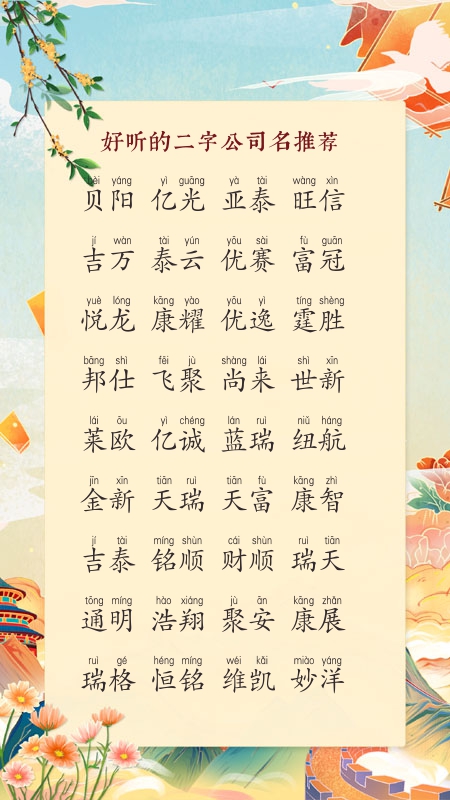 好听的二字公司名推荐
bèi yáng yì guāng yà tài wàng xìn
贝阳 亿光 亚泰 旺信
jí wàn tài yún yōu sài fù guān
吉万 泰云 优赛 富冠
yuè lóng kāng yào yōu yì tíng shèng
悦龙 康耀 优逸 霆胜
bāng shì fēi jù shàng lái shì xīn
邦仕 飞聚 尚来 世新
lái ōu yì chéng lán ruì niǔ háng
莱欧 亿诚 蓝瑞 纽航
jīn xīn tiān ruì tiān fù kāng zhì
金新 天瑞 天富 康智
jí tài míng shùn cái shùn ruì tiān
吉泰 铭顺 财顺 瑞天
tōng míng hào xiáng jù ān kāng zhǎn
通明 浩翔 聚安 康展
ruì gé héng míng wéi kǎi miào yáng
瑞格 恒铭 维凯 妙洋